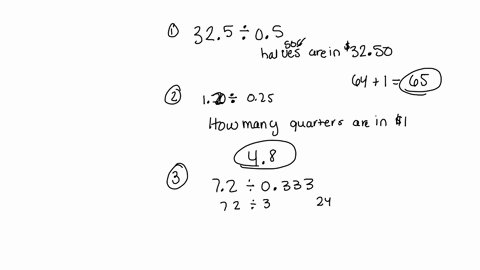 ① 32.5 ÷ 0.5
50¢
halves are in $32.50
64 + 1 = 65
② 1.20 ÷ 0.25
How many quarters are in $1
4.8
③ 7.2 ÷ 0.333
72 ÷ 3 24